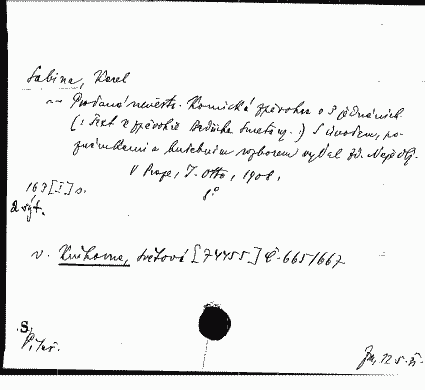 Sabina, Karel
~ Prodaná nevěsta. Komická zpěvohra o 3 jednáních
(: Text k zpěvohře Bedřicha Smetany. :) S úvodem, po-
známkami a hudebním rozborem vydal Zd. Nejedlý.
V Praze, J. Otto, 1908.
167 [I] s. 8°
2 výt.
v. Knihovna, Světová [74455] č. 665/667
S.